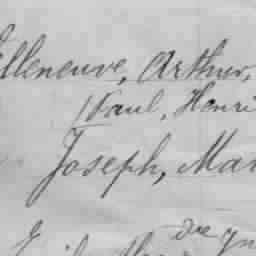 Villeneuve, Arthur,
Paul, Henri
Joseph, Mar